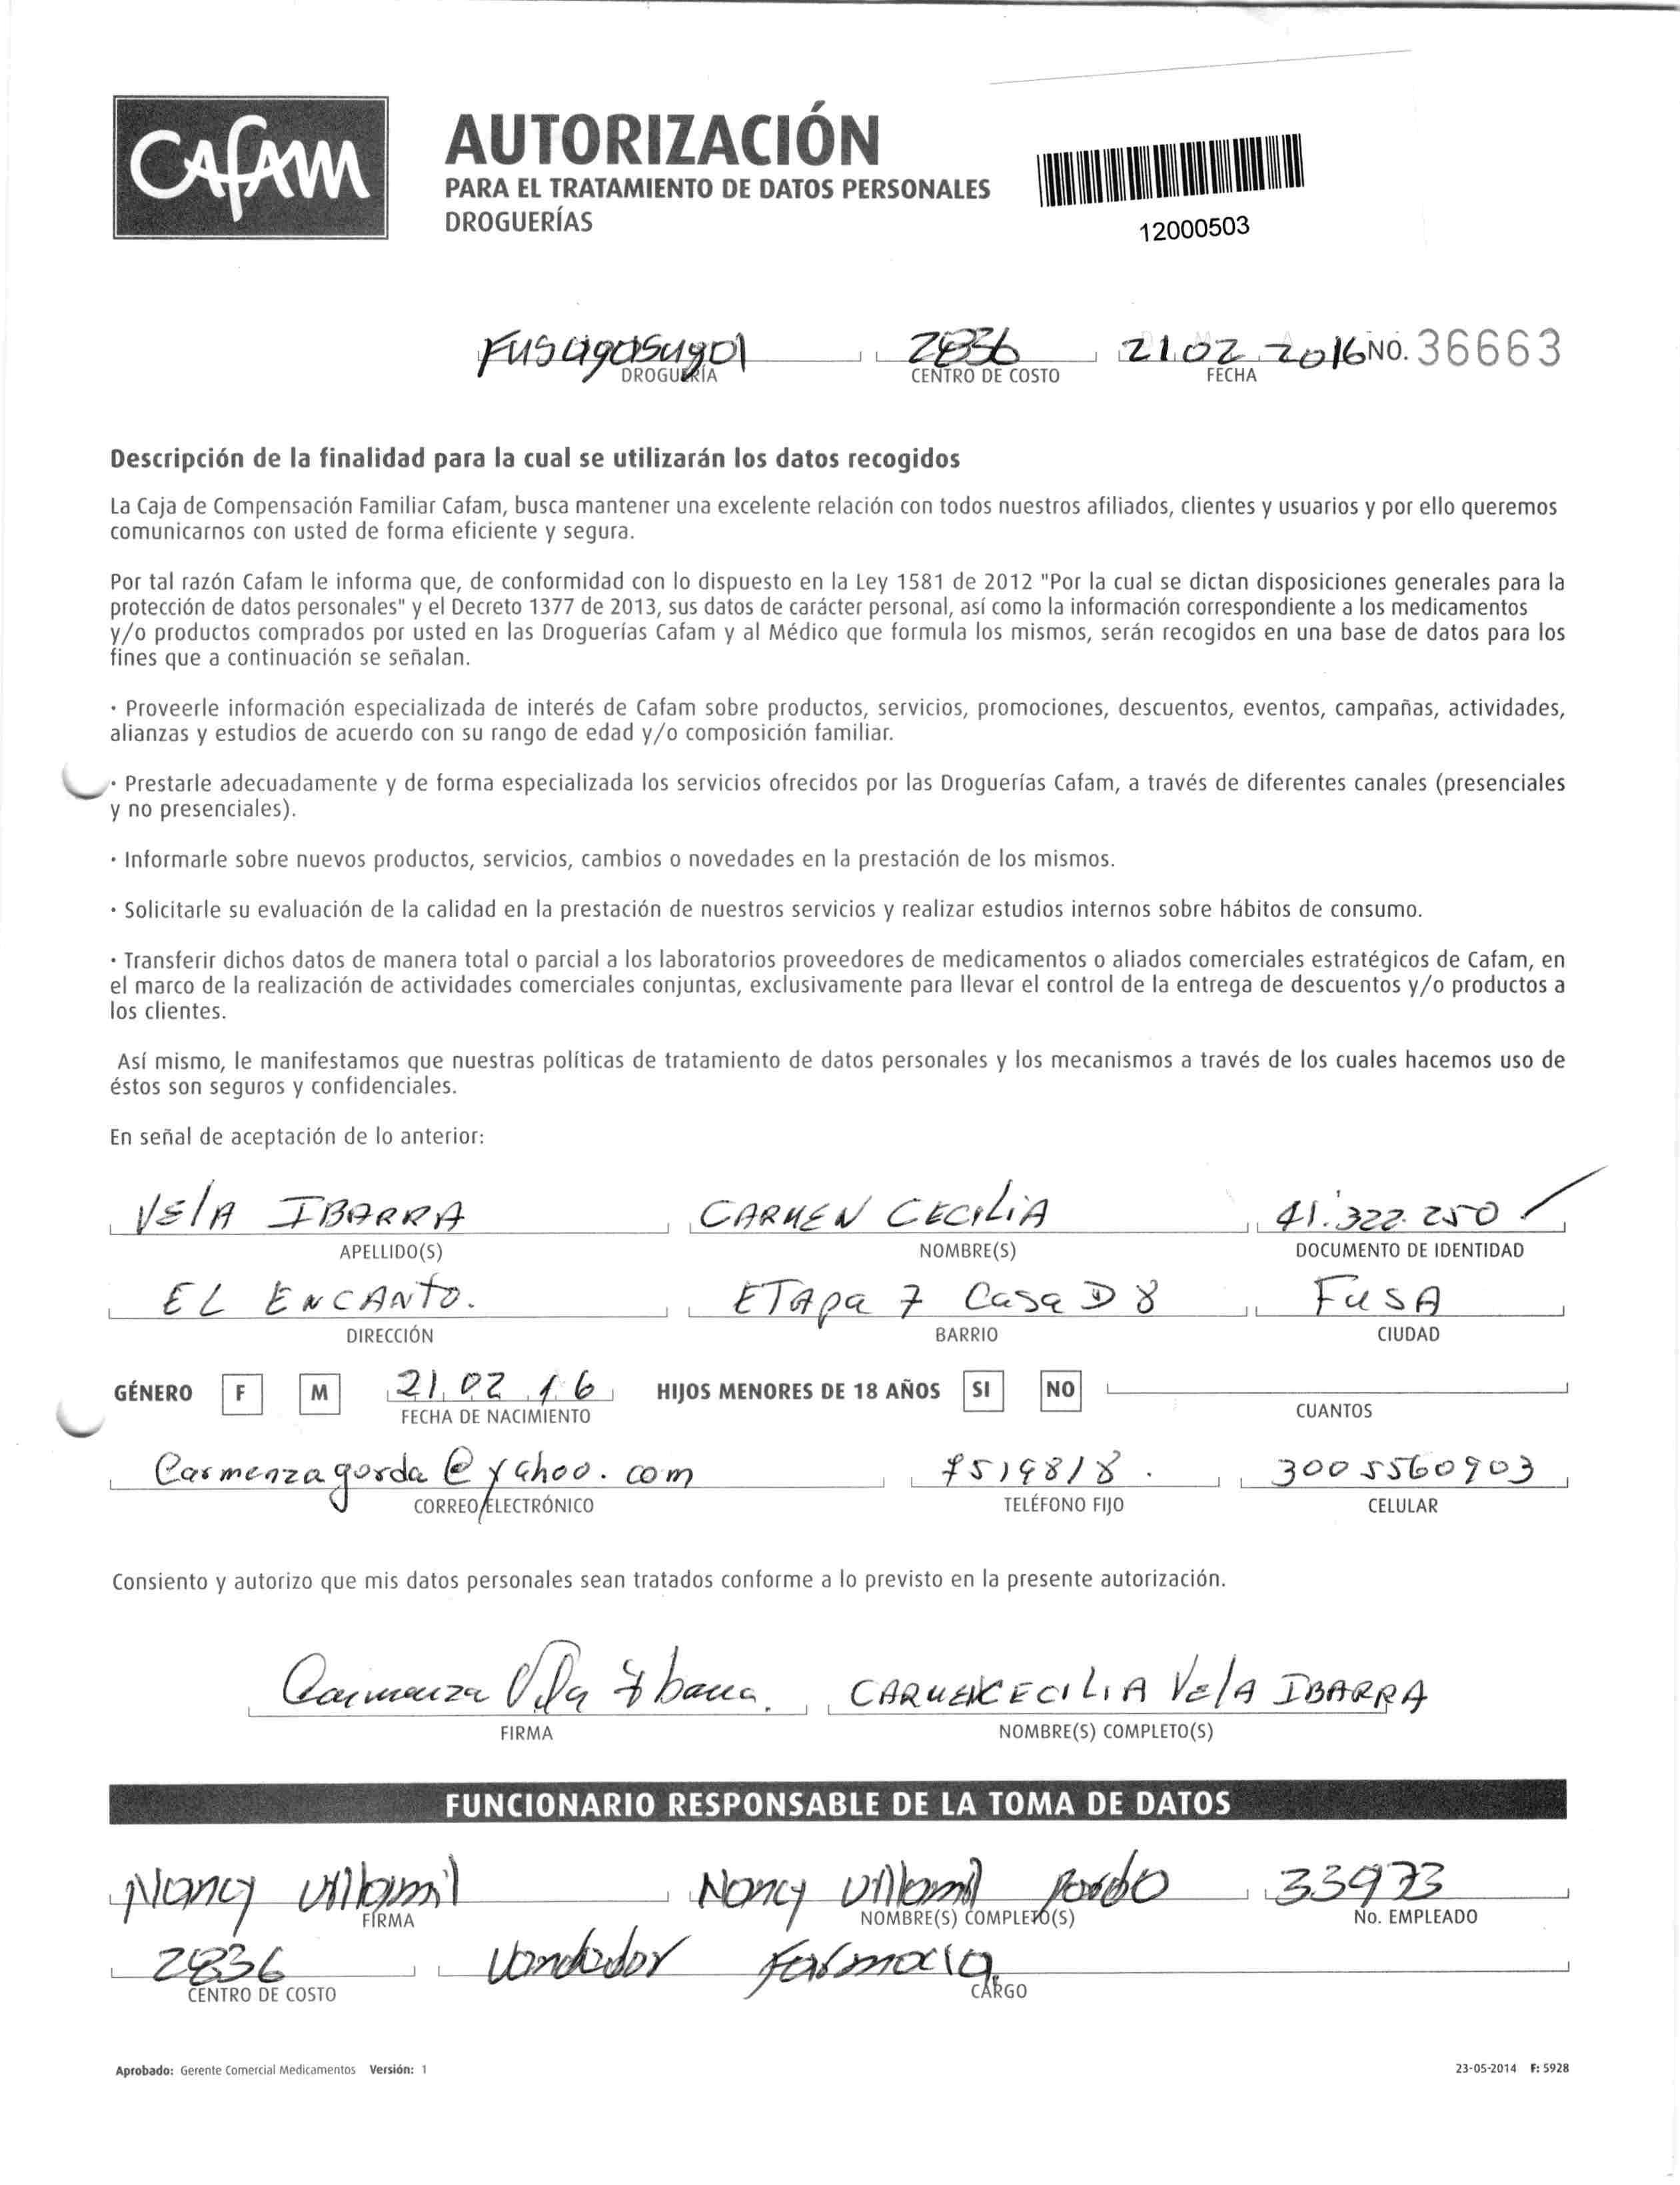 CAFAM
AUTORIZACIÓN
PARA EL TRATAMIENTO DE DATOS PERSONALES
DROGUERÍAS
12000503
Fusagasuga 2836 21 02 2016 NO. 36663
DROGUERÍA CENTRO DE COSTO FECHA
Descripción de la finalidad para la cual se utilizarán los datos recogidos
La Caja de Compensación Familiar Cafam, busca mantener una excelente relación con todos nuestros afiliados, clientes y usuarios y por ello queremos
comunicarnos con usted de forma eficiente y segura.
Por tal razón Cafam le informa que, de conformidad con lo dispuesto en la Ley 1581 de 2012 "Por la cual se dictan disposiciones generales para la
protección de datos personales" y el Decreto 1377 de 2013, sus datos de carácter personal, así como la información correspondiente a los medicamentos
y/o productos comprados por usted en las Droguerías Cafam y al Médico que formula los mismos, serán recogidos en una base de datos para los
fines que a continuación se señalan.
· Proveerle información especializada de interés de Cafam sobre productos, servicios, promociones, descuentos, eventos, campañas, actividades,
alianzas y estudios de acuerdo con su rango de edad y/o composición familiar.
· Prestarle adecuadamente y de forma especializada los servicios ofrecidos por las Droguerías Cafam, a través de diferentes canales (presenciales
y no presenciales).
· Informarle sobre nuevos productos, servicios, cambios o novedades en la prestación de los mismos.
· Solicitarle su evaluación de la calidad en la prestación de nuestros servicios y realizar estudios internos sobre hábitos de consumo.
· Transferir dichos datos de manera total o parcial a los laboratorios proveedores de medicamentos o aliados comerciales estratégicos de Cafam, en
el marco de la realización de actividades comerciales conjuntas, exclusivamente para llevar el control de la entrega de descuentos y/o productos a
los clientes.
Así mismo, le manifestamos que nuestras políticas de tratamiento de datos personales y los mecanismos a través de los cuales hacemos uso de
éstos son seguros y confidenciales.
En señal de aceptación de lo anterior:
VElA IBARRA CARMEN CECILiA 41.322.250
APELLIDO(S) NOMBRE(S) DOCUMENTO DE IDENTIDAD
EL ENCANTO. ETApa 7 Casa D 8 FuSA
DIRECCIÓN BARRIO CIUDAD
GÉNERO F M 21 02 16 HIJOS MENORES DE 18 AÑOS SI NO
FECHA DE NACIMIENTO CUANTOS
Carmenzagorda@yahoo.com 3005560903
CORREO ELECTRÓNICO TELÉFONO FIJO CELULAR
Consiento y autorizo que mis datos personales sean tratados conforme a lo previsto en la presente autorización.
Carmenza Vela Ibarra. CARMEN CECILIA VElA IBARRA
FIRMA NOMBRE(S) COMPLETO(S)
FUNCIONARIO RESPONSABLE DE LA TOMA DE DATOS
Nancy Villamil Nancy Villamil 33973
FIRMA NOMBRE(S) COMPLETO(S) No. EMPLEADO
2836 Vendedor Farmacia
CENTRO DE COSTO CARGO
Aprobado: Gerente Comercial Medicamentos Versión: 1 23-05-2014 F: 5928